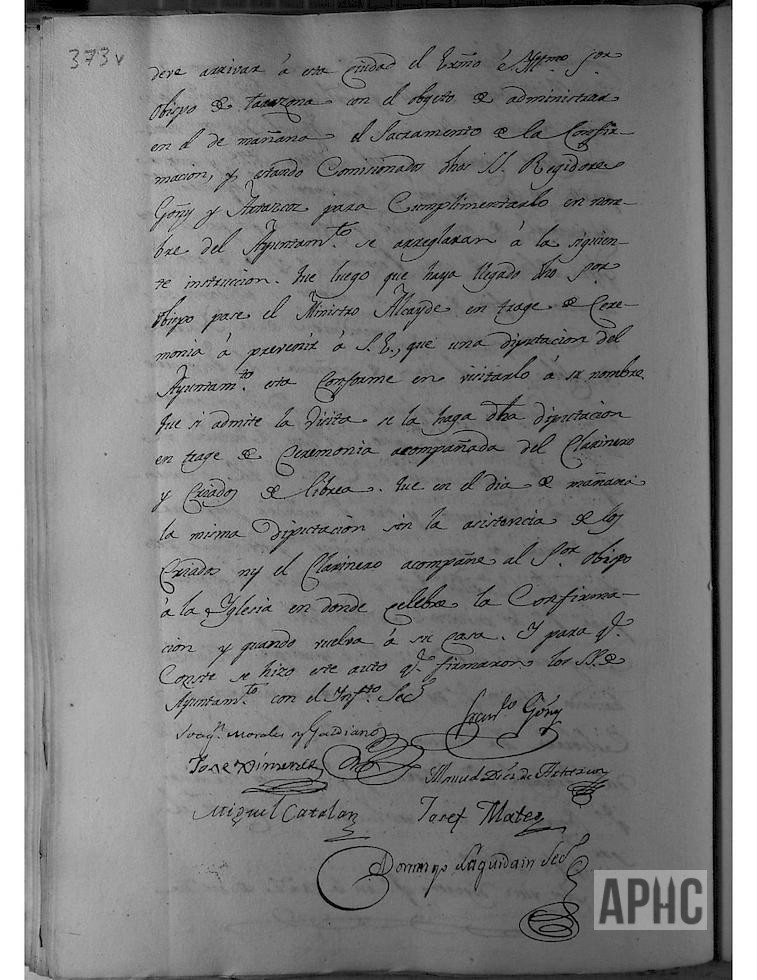 373v
deve arrivar á esta Ciudad el Exmo é Yllmo Sor
Obispo de Tarazona con el obgeto de administrar
en el de mañana el Sacramento de la Confir-
macion, y estando Comisionados dhos SS. Regidores
Goñy y Artazcoz para Cumplimentarlo en nom-
bre del Ayuntamto se arreglaran á la siguien-
te instruccion. Que luego que haya llegado dho Sor
obispo pase el Ministro Alcayde en trage de Cere-
monia á prevenir á S. E., que una diputacion del
Ayuntamto esta Conforme en visitarlo á su nombre.
Que si admite la Visita se la haga dha diputacion
en trage de Ceremonia acompañada del Clarinero
y Criados de librea. Que en el dia de mañana
la misma Diputacion sin la asistencia de los
Criados ny el Clarinero acompañe al Sor Obispo
á la Yglesia en donde celebre la Confirma-
cion y quando vuelva á su casa. Y para q.
Conste se hizo este auto q. firmaron los SS. de
Ayuntamto con el Infrto Seco
Joaqn Morales y Gadiano
Goñy
Jose Ximenez
Manuel Diez de Artazcoz
Miguel Catalan
Josef Mateo
Domingo Laquidain Seco
APHC